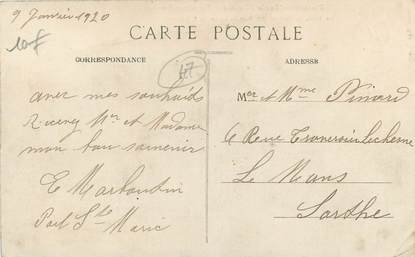 9 Janvier 1920
10f
CARTE POSTALE
CORRESPONDANCE
47
ADRESSE
avec mes souhaits
Recevez Mr et Madame
mon bon souvenir
E
Port Ste Marie
Mer et Mme Pinard
6 Rue
Le Mans
Sarthe